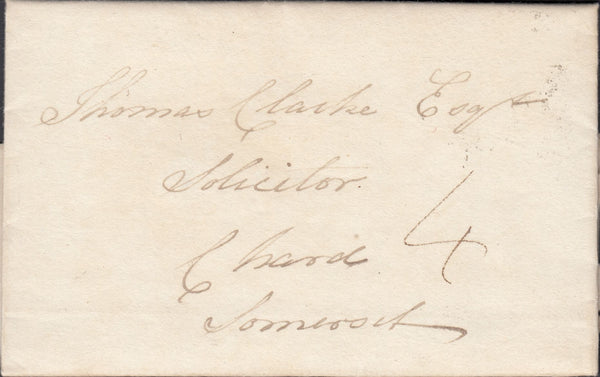 Thomas Clarke Esqr
Solicitor.
Chard
4
Somerset